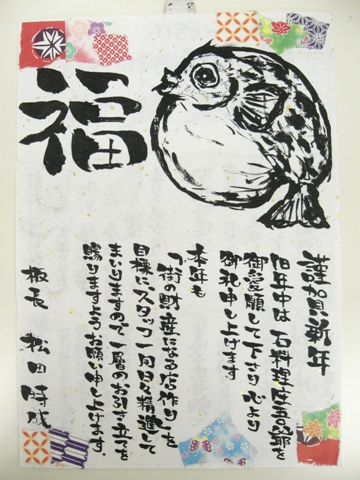 福
謹賀新年
旧年中は石料理庄五の爺を
御愛顧して下さり心より
御礼申し上げます
本年も
「街の財産になる店作り」を
目標にスタッフ一同日々精進して
まいりますので一層のお引き立てを
賜りますようお願い申し上げます。
板長 松田時成